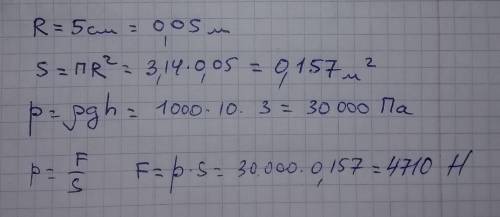 R = 5 см = 0,05 м
S = ПR² = 3,14·0,05 = 0,157 м²
p = ρgh = 1000·10·3 = 30 000 Па
p = F/S   F = p·S = 30.000·0,157 = 4710 Н